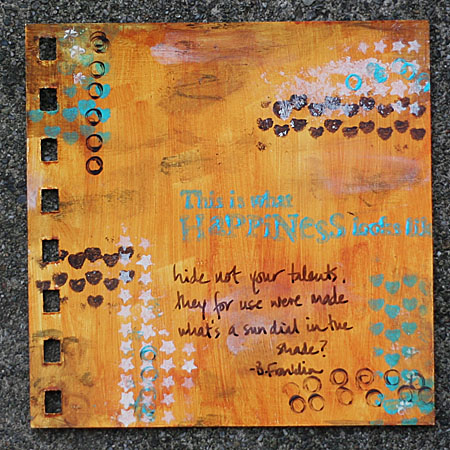 This is what
HAPPINESS looks like
hide not your talents,
they for use were made
what's a sundial in the
shade?
-B. Franklin